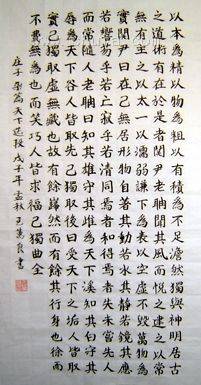 以本為精以物為粗以有積為不足澹然獨與神明居古
之道術有在於是者關尹老聃聞其風而悅之建之以常
無有主之以太一以濡弱謙下為表以空虛不毀萬物為
實關尹曰在己無居形物自著其動若水其靜若鏡其應
若響芴乎若亡寂乎若清同焉者和得焉者失未嘗先人
而常隨人老聃曰知其雄守其雌為天下溪知其白守其
辱為天下谷人皆取先己獨取後曰受天下之垢人皆取
實己獨取虛無藏也故有餘巋然而有餘其行身也徐而
不費無為也而笑巧人皆求福己獨曲全
庄子雜篇天下選段 戊子年孟秋 王萬良書